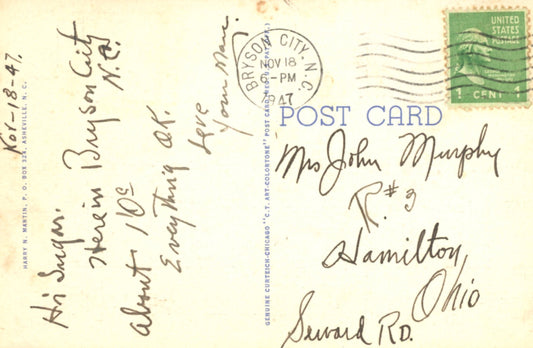 Nov-18-47.
Hi Sugar.
Here in Bryson City
N.C.
About 10c
Everything OK.
Love
Your Man.
HARRY N. MARTIN, P. O. BOX 324, ASHEVILLE, N. C.
GENUINE CURTEICH-CHICAGO "C.T. ART-COLORTONE" POST CARD (REG. U.S. PAT. OFF.)
BRYSON CITY, N.C.
NOV 18
6-PM
1947
UNITED
STATES
POSTAGE
1 CENT 1
POST CARD
Mrs John Murphy
R#3
Hamilton,
Ohio
Seward RD.